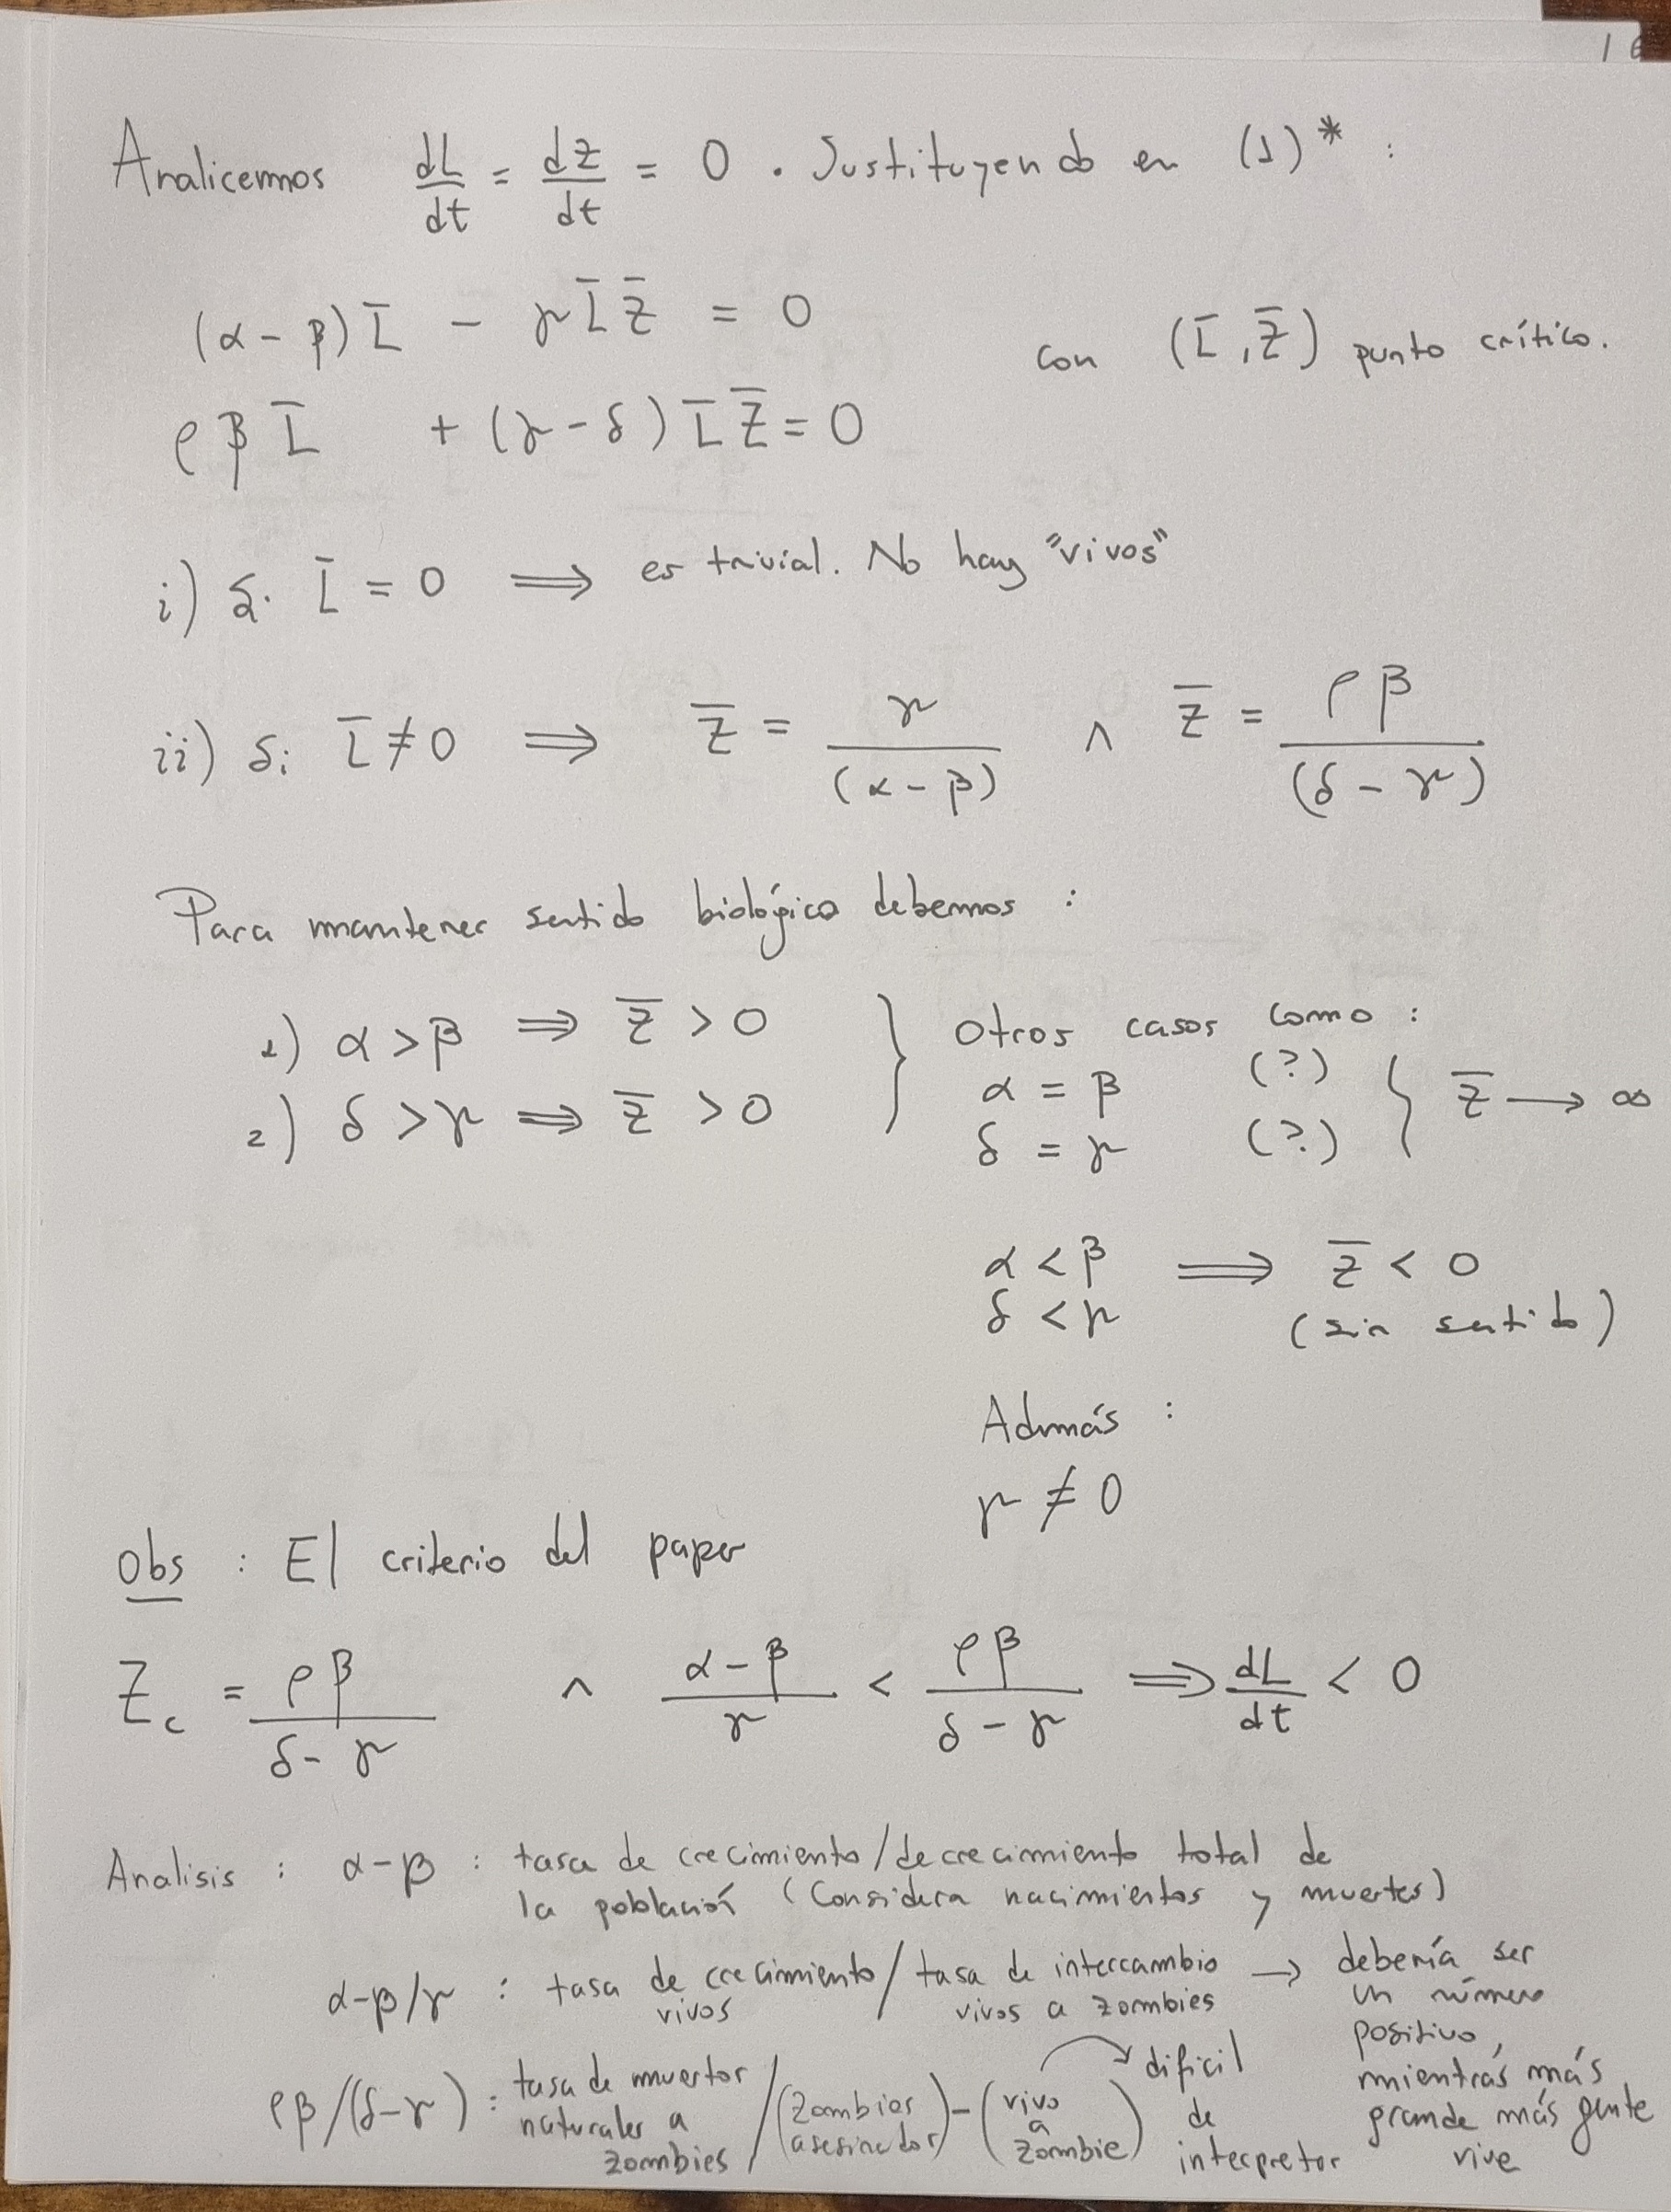 1
Analicemos dL/dt = dZ/dt = 0 . Sustituyendo en (1)* :
(α - β) L̄ - γ L̄ Z̄ = 0
con (L̄, Z̄) punto crítico.
ρ β L̄ + (γ - δ) L̄ Z̄ = 0
i) Si L̄ = 0 ⟹ es trivial. No hay "vivos"
ii) Si L̄ ≠ 0 ⟹ Z̄ = γ / (α - β) ∧ Z̄ = ρ β / (δ - γ)
Para mantener sentido biológico debemos :
1) α > β ⟹ Z̄ > 0
2) δ > γ ⟹ Z̄ > 0
} Otros casos como :
α = β (?)
δ = γ (?)
} Z̄ → ∞
α < β ⟹ Z̄ < 0
δ < γ (sin sentido)
Además :
γ ≠ 0
Obs : El criterio del paper
Z_c = ρ β / δ - γ ∧ α - β / γ < ρ β / δ - γ ⟹ dL/dt < 0
Analisis : α - β : tasa de crecimiento/decrecimiento total de
la población (Considera nacimientos y muertes)
α-β/γ : tasa de crecimiento vivos / tasa de intercambio vivos a zombies → debería ser
un número
positivo,
mientras más
grande más gente
vive
ρβ/(δ-γ) : tasa de muertos naturales a zombies / (zombies asesinados) - (vivo a zombie) → dificil
de
interpretar